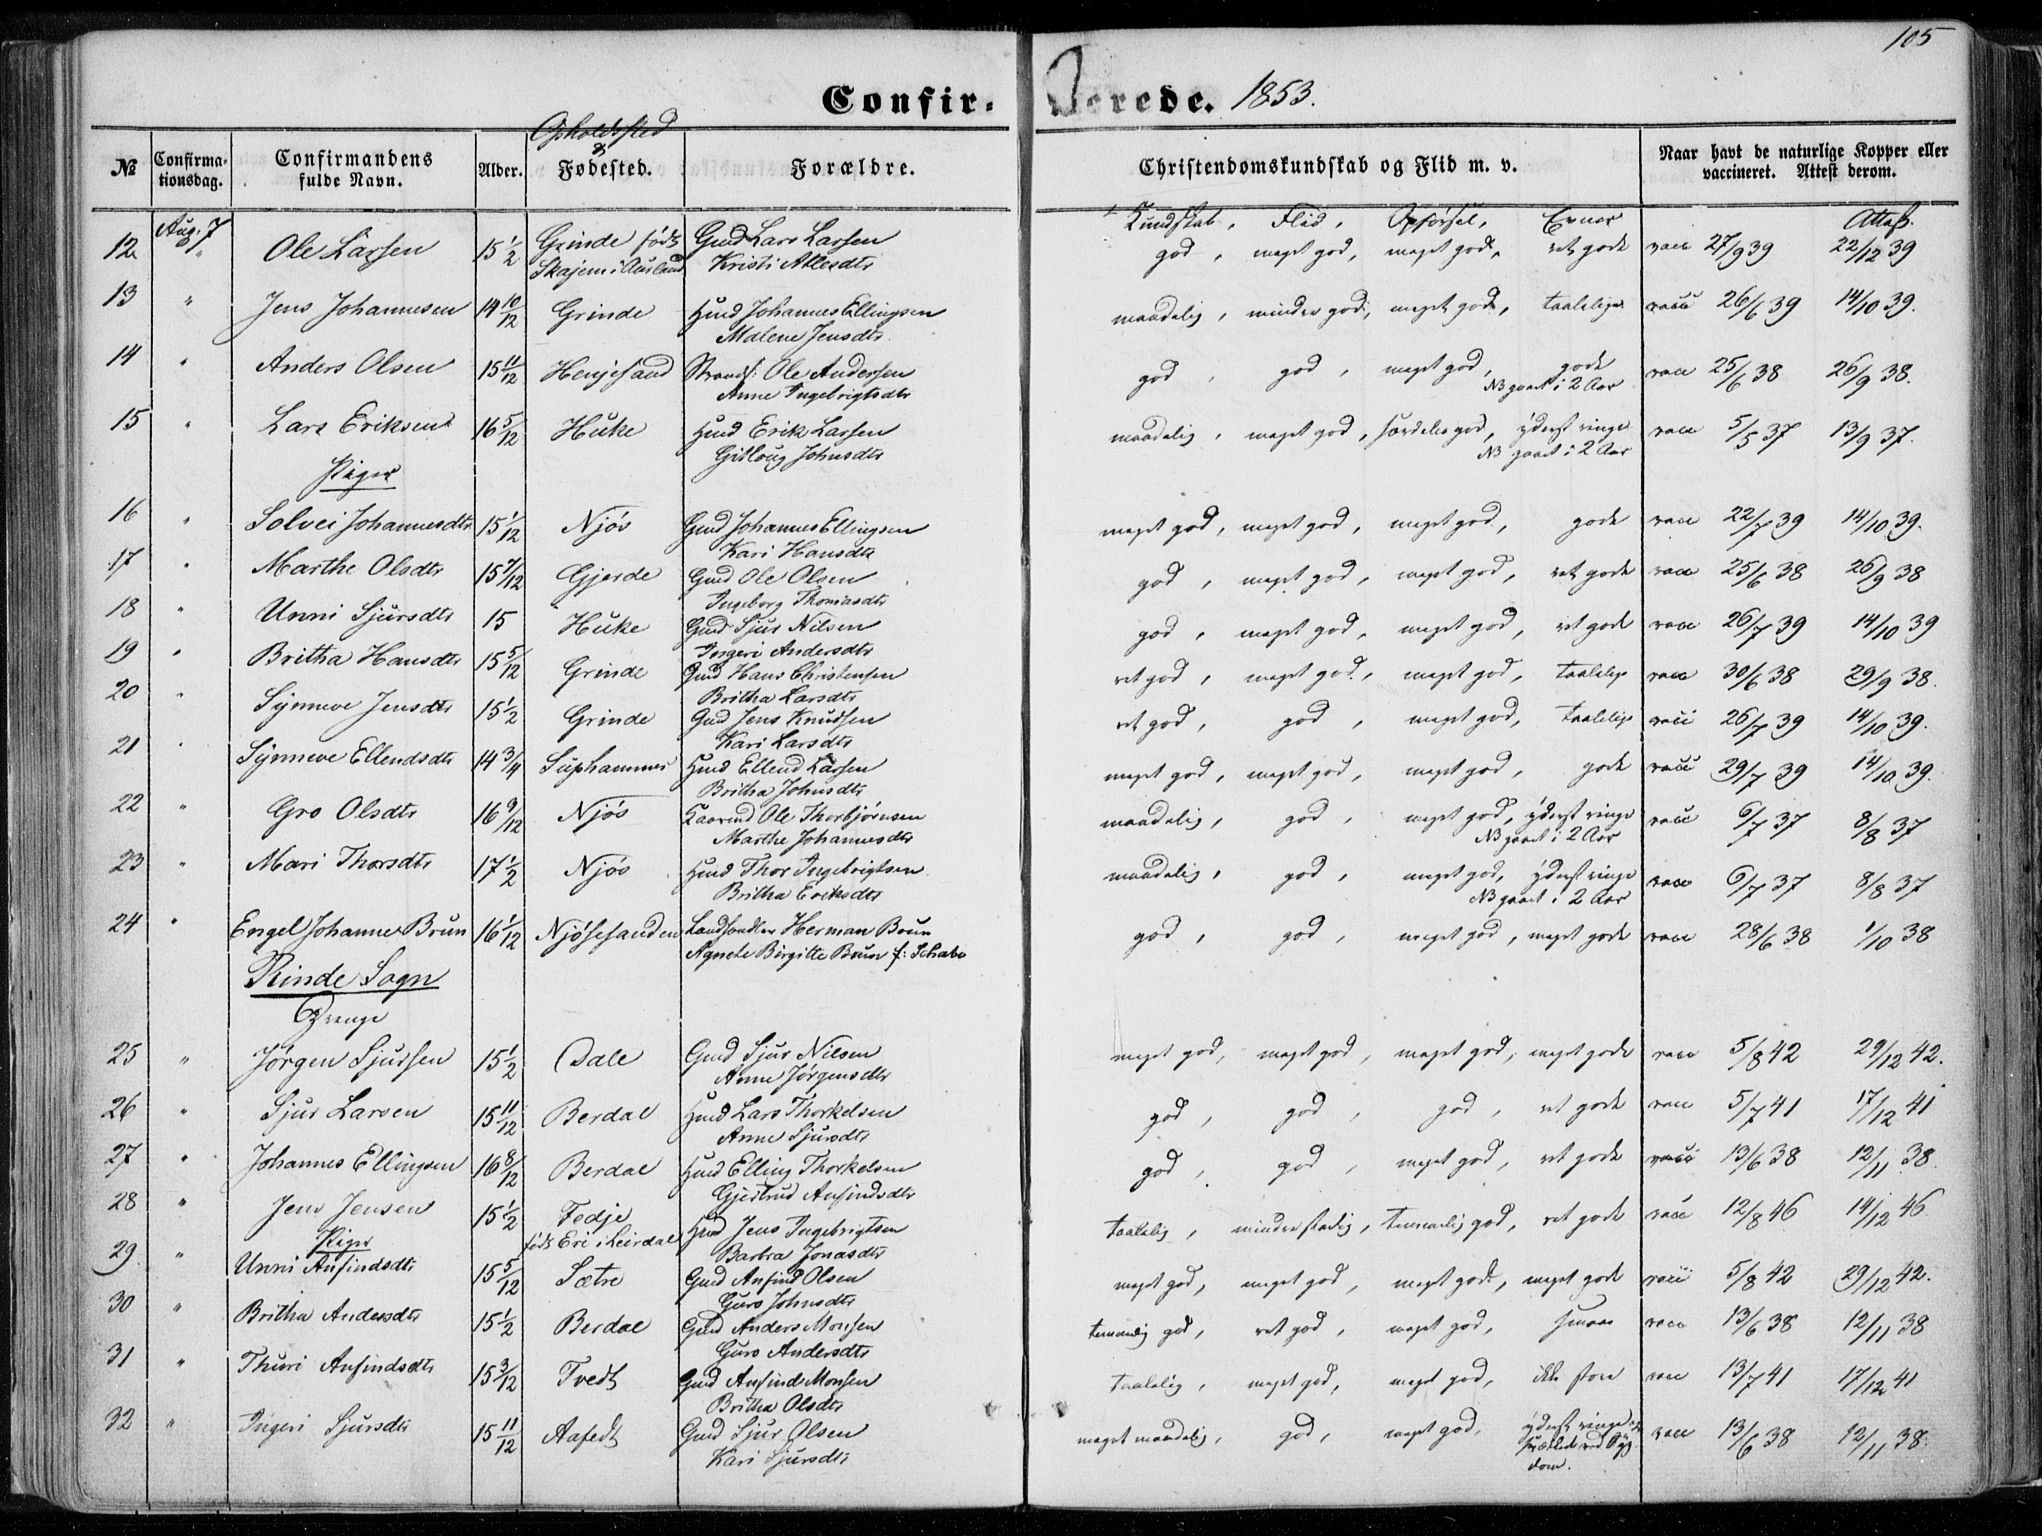 105
Confir- merede. 1853.
Opholdssted
&
№ Confirmationsdag. Confirmandens fulde Navn. Alder. Fødested. Forældre. Christendomskundskab og Flid m. v. Naar havt de naturlige Kopper eller vaccineret. Attest derom.
Aug. 7 Kundskab, Flid, Opførsel, Evner Attest.
12 " Ole Larsen 15 1/2 Grinde født Gmd Lars Larsen god, meget god, meget god, ret gode vacc 27/9 39 22/12 39
Skajem i Aurland Kristi Atlesdtr
13 " Jens Johannesen 14 10/12 Grinde Hmd Johannes Ellingsen maadelig, mindre god, meget god, taalelige vacc 26/6 39 14/10 39.
Malene Jensdtr
14 " Anders Olsen 15 11/12 Henjesand Strands: Ole Andersen god, god, meget god, gode vacc 25/6 38 26/9 38.
Anne Ingebrigtsdtr NB gaaet i 2 Aar
15 " Lars Eriksen 16 5/12 Huke Hmd Erik Larsen maadelig, meget god, særdeles god, yderst ringe vacc 5/5 37 13/9 37.
Gitloug Johnsdtr NB gaaet i 2 Aar
Piger
16 " Solvei Johannesdtr 15 1/12 Njøs Gmd Johannes Ellingsen meget god, meget god, meget god, gode vacc 22/7 39 14/10 39.
Kari Hansdtr
17 " Marthe Olsdtr 15 7/12 Gjerde Gmd Ole Olsen god, meget god, meget god, ret gode vacc 25/6 38 26/9 38
Ingeborg Thomasdtr
18 " Unni Sjursdtr 15 Huke Gmd Sjur Nilsen god, meget god, meget god, ret gode vacc 26/7 39 14/10 39
Ingeri Andersdtr
19 " Britha Hansdtr 15 5/12 Grinde Gmd Hans Christensen ret god, meget god, meget god, taalelige vacc 30/6 38 29/9 38.
Britha Larsdtr
20 " Synneve Jensdtr 15 1/2 Grinde Gmd Jens Knudsen ret god, god, meget god, taalelige vacc 26/7 39 14/10 39.
Kari Larsdtr
21 " Synneve Ellendsdtr 14 3/4 Suphammer Hmd Ellend Larsen meget god, meget god, meget god, gode vacc 29/7 39 14/10 39.
Britha Johnsdtr
22 " Gro Olsdtr 16 9/12 Njøs Kaarmd Ole Thorbjørnsen maadelig, god, meget god, yderst ringe vacc 6/7 37 8/8 37
Marthe Johannesdtr NB gaaet i 2 Aar
23 " Mari Thorsdtr 17 1/2 Njøs Hmd Thor Ingebrigtsen maadelig, god, meget god, yderst ringe vacc 6/7 37 8/8 37
Britha Eriksdtr NB gaaet i 2 Aar
24 " Engel Johanne Brun 16 1/12 Njøsesanden Landhandler Herman Brun god, god, meget god, meget gode vacc 28/6 38 1/10 38
Agnete Birgitte Brun f: Schabo
Rinde Sogn
Drenge
25 " Jørgen Sjursen 15 1/2 Dale Gmd Sjur Nilsen meget god, meget god, meget god, meget gode vacc 5/8 42 29/12 42.
Anne Jørgensdtr
26 " Sjur Larsen 15 11/12 Berdal Hmd Lars Thorkelsen god, god, god, ret gode vacc 5/7 41 17/12 41
Anne Sjursdtr
27 " Johannes Ellingsen 16 8/12 Berdal Hmd Elling Thorkelsen god, god, meget god, ret gode vacc 13/6 38 12/11 38.
Gjertrud Anfindsdtr
28 " Jens Jensen 15 1/2 Fedje Hmd Jens Ingebrigtsen taalelig, mindre stadig, temmelig god, ret gode vacc 12/8 46 14/12 46
Piger født Eri i Leirdal Barbra Jonasdtr
29. " Unni Anfindsdtr 15 5/12 Sætre Gmd Anfind Olsen meget god, meget god, meget god, meget gode vacc 5/8 42 29/12 42.
Guro Johnsdtr
30 " Britha Andersdtr 15 1/2 Berdal Gmd Anders Monsen temmelig god, ret god, meget god, smaa vacc 13/6 38 12/11 38
Guro Andersdtr
31 " Thuri Anfindsdtr 15 3/12 Tvedt Gmd Anfind Monsen taalelig, meget god, meget god, ikke store vacc 13/7 41 17/12 41
Britha Olsdtr
32 " Ingeri Sjursdtr 15 11/12 Aafedt Gmd Sjur Olsen meget maadelig, god, meget god, yderst ringe og vacc 13/6 38 12/11 38.
Kari Sjursdtr svækkede ved Sygdom.